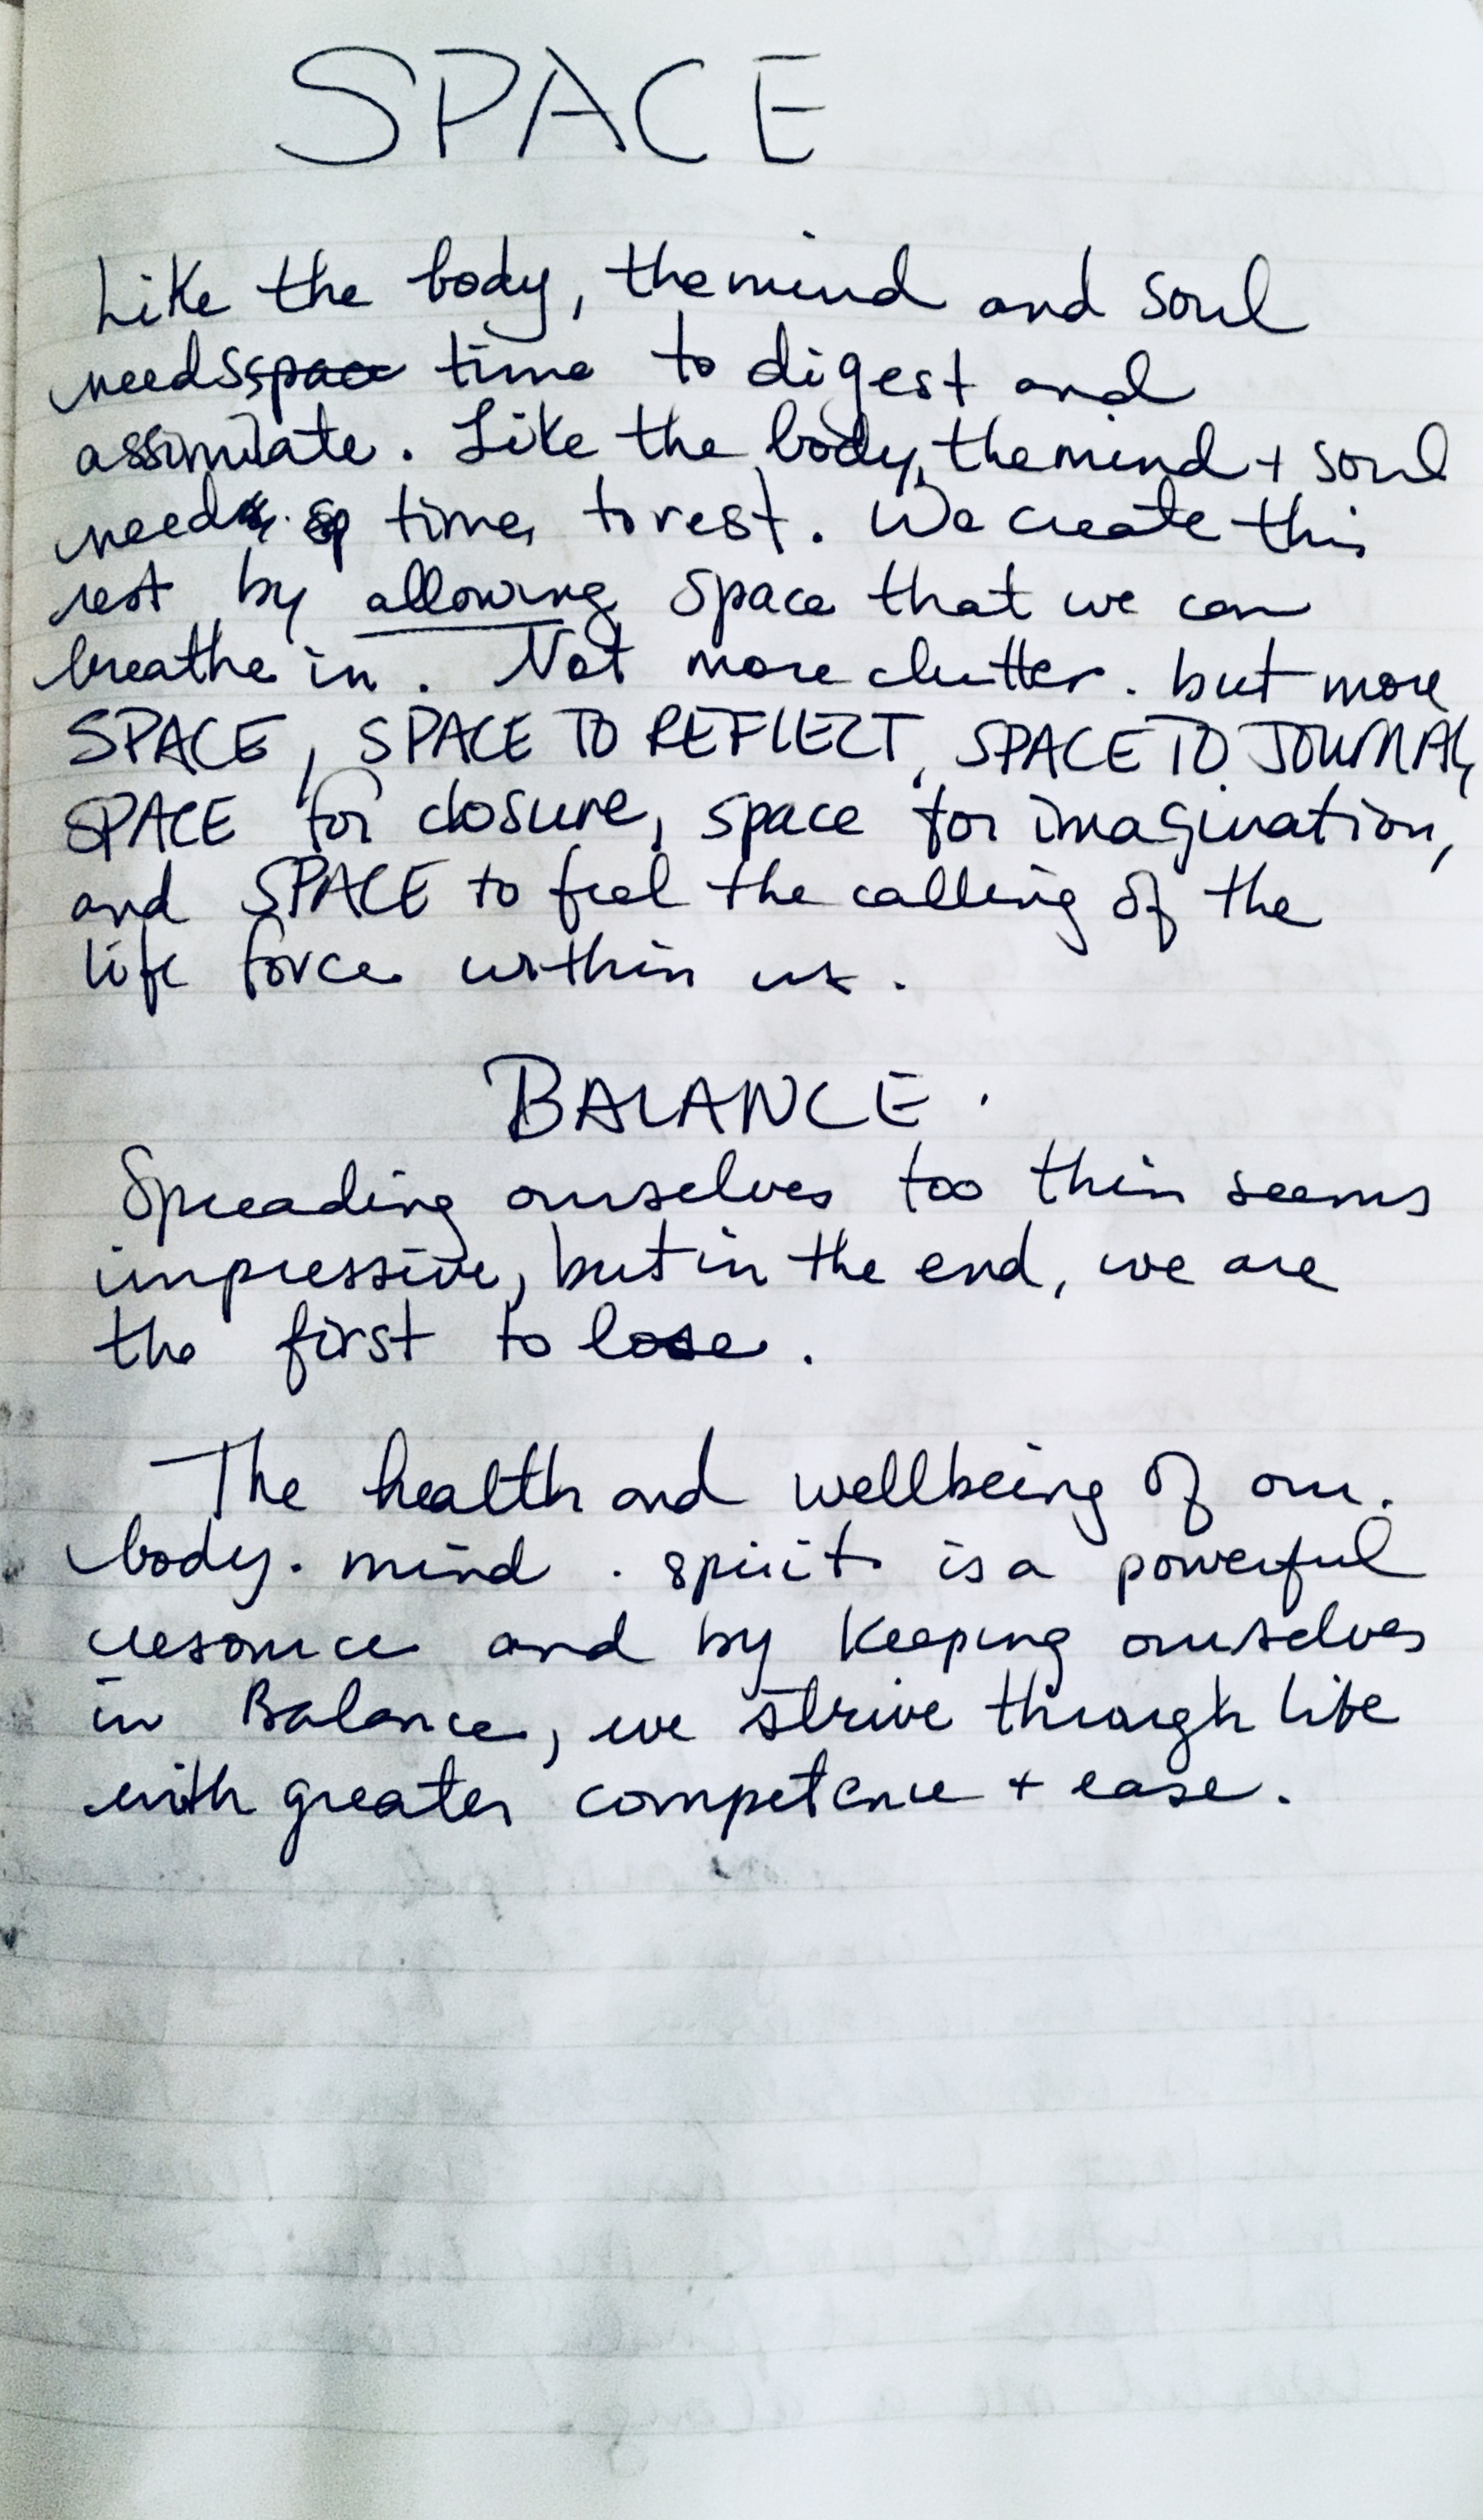 SPACE
Like the body, the mind and soul
needs space time to digest and
assimilate. Like the body, the mind + soul
need sp time to rest. We create this
rest by allowing space that we can
breathe in. Not more clutter. but more
SPACE, SPACE TO REFLECT, SPACE TO JOURNAL,
SPACE for closure, space for imagination,
and SPACE to feel the calling of the
life force within us.
BALANCE.
Spreading ourselves too thin seems
impressive, but in the end, we are
the first to lose.
The health and wellbeing of our.
body. mind. spirit is a powerful
resource and by keeping ourselves
in Balance, we strive through life
with greater competence + ease.